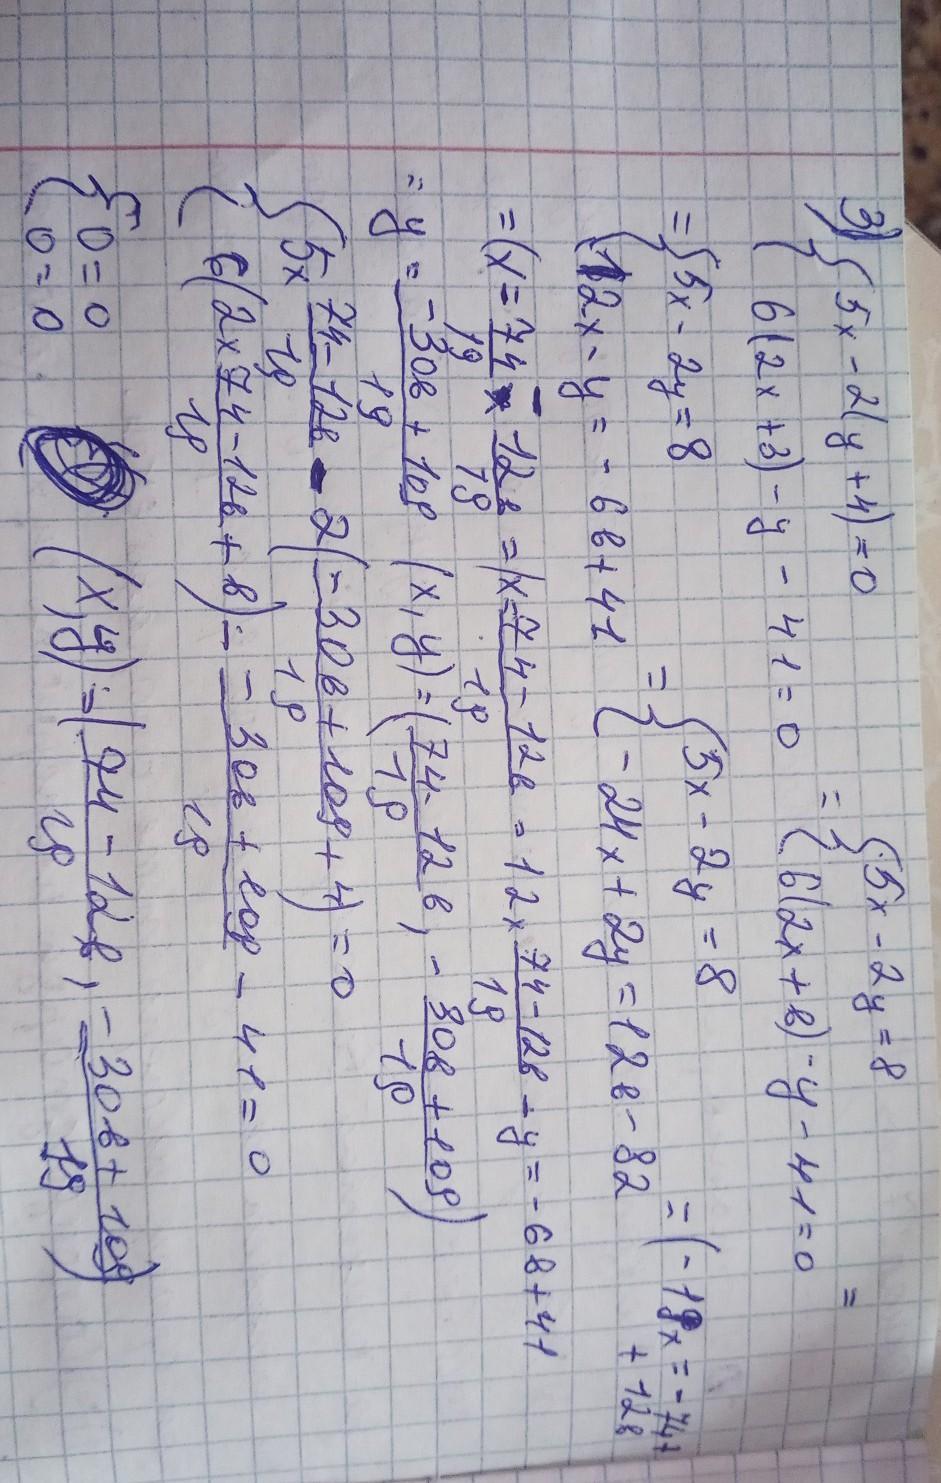 3) { 5x - 2(y + 4) = 0
{ 6(2x + 3) - y - 41 = 0
= { 5x - 2y = 8
{ 6(2x + в) - y - 41 = 0 =
= { 5x - 2y = 8
{ 12x - y = - 6в + 41
= { 5x - 2y = 8
{ - 24x + 2y = 12в - 82
= ( - 19x = - 74 + 12в
= (x = 74/19 - 12в/19 = (x = 74 - 12в/19 = 12 x 74 - 12в/19 - y = - 6в + 41
= y = - 30в + 109/19 (x, y) = (74 - 12в/19, - 30в + 109/19)
{ 5x 74 - 12в/19 - 2(- 30в + 109/19 + 4) = 0
{ 6(2x 74 - 12в/19 + в) - - 30в + 109/19 - 41 = 0
{ 0 = 0
{ 0 = 0
(x, y) = (74 - 12в/19, - 30в + 109/19)